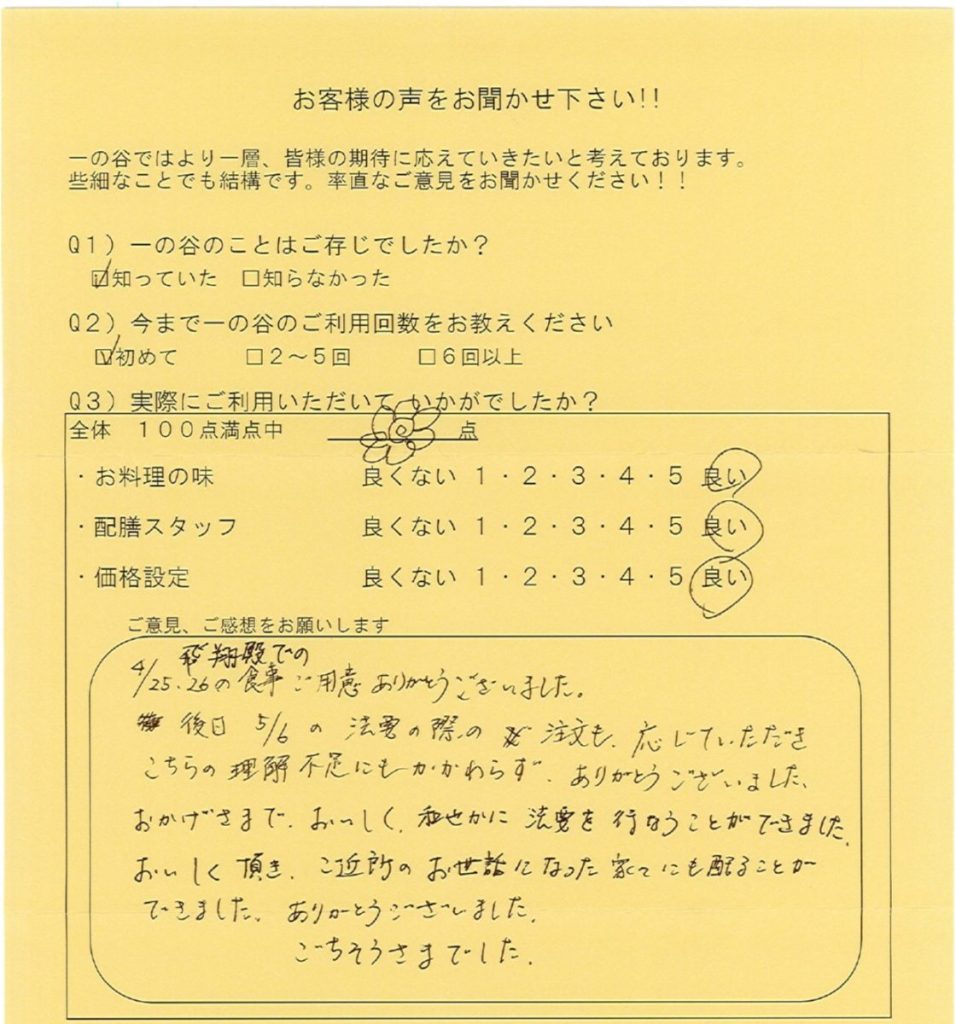 お客様の声をお聞かせ下さい!!
一の谷ではより一層、皆様の期待に応えていきたいと考えております。
些細なことでも結構です。率直なご意見をお聞かせください！！
Q1）一の谷のことはご存じでしたか？
☑知っていた　□知らなかった
Q2）今まで一の谷のご利用回数をお教えください
☑初めて　□2～5回　□6回以上
Q3）実際にご利用いただいて いかがでしたか？
全体　100点満点中　点
・お料理の味　良くない 1・2・3・4・5 良い
・配膳スタッフ　良くない 1・2・3・4・5 良い
・価格設定　良くない 1・2・3・4・5 良い
ご意見、ご感想をお願いします
飛翔殿での
4/25.26の食事ご用意ありがとうございました。
後日 5/6 の 法要の際の 注文も、応じていただき
こちらの理解不足にもかかわらず、ありがとうございました、
おかげさまで、おいしく、和やかに 法要を行なうことができました、
おいしく頂き、ご近所のお世話になった家々にも配ることが
できました、ありがとうございました、
ごちそうさまでした、